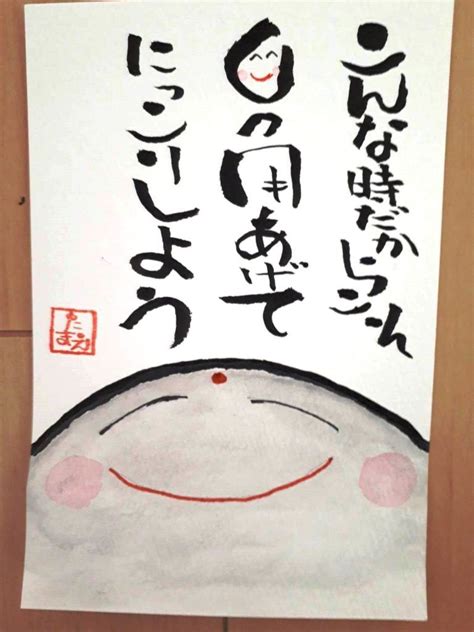 こんな時だからこそ
口角あげて
にっこりしよう